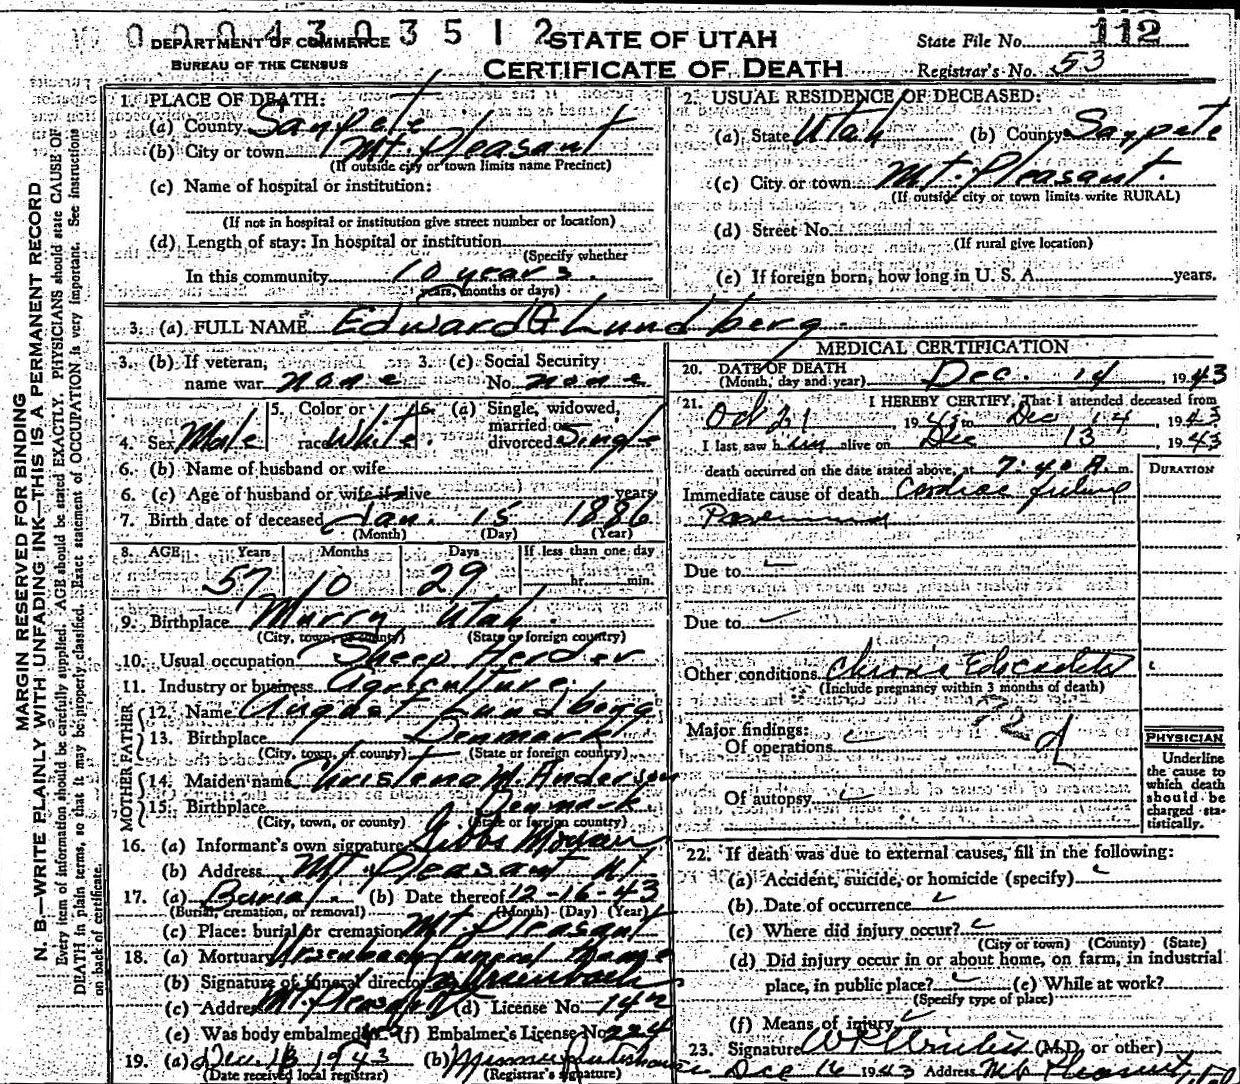 0 0 0 4 3 0 3 5 1 2
DEPARTMENT OF COMMERCE
BUREAU OF THE CENSUS
STATE OF UTAH
CERTIFICATE OF DEATH
State File No. 112
Registrar's No. 53
MARGIN RESERVED FOR BINDING
N. B.—WRITE PLAINLY WITH UNFADING INK—THIS IS A PERMANENT RECORD
Every item of information should be carefully supplied. AGE should be stated EXACTLY. PHYSICIANS should state CAUSE OF
DEATH in plain terms, so that it may be properly classified. Exact statement of OCCUPATION is very important. See instructions
on back of certificate.
1. PLACE OF DEATH:
(a) County Sanpete
(b) City or town Mt. Pleasant
(If outside city or town limits name Precinct)
(c) Name of hospital or institution:
(If not in hospital or institution give street number or location)
(d) Length of stay: In hospital or institution
(Specify whether
In this community 10 years.
years, months or days)
2. USUAL RESIDENCE OF DECEASED:
(a) State Utah (b) County Sanpete
(c) City or town Mt. Pleasant.
(If outside city or town limits write RURAL)
(d) Street No.
(If rural give location)
(e) If foreign born, how long in U. S. A. years.
3. (a) FULL NAME Edward Lundberg
3. (b) If veteran, 3. (c) Social Security
name war none No. none
4. Sex Male 5. Color or race White. 6. (a) Single, widowed, married or divorced Single
6. (b) Name of husband or wife
6. (c) Age of husband or wife if alive years
7. Birth date of deceased Jan. 15 1886
(Month) (Day) (Year)
8. AGE Years Months Days If less than one day
57 10 29 hr. min.
9. Birthplace Murry Utah.
(City, town, or county) (State or foreign country)
10. Usual occupation Sheep Herder
11. Industry or business Agriculture.
FATHER
12. Name August Lundberg
13. Birthplace Denmark
(City, town, or county) (State or foreign country)
MOTHER
14. Maiden name Christena M. Anderson
15. Birthplace Denmark.
(City, town, or county) (State or foreign country)
16. (a) Informant's own signature Gibbs Morgan
(b) Address Mt Pleasant Ut
17. (a) Burial. (b) Date thereof 12-16-43
(Burial, cremation, or removal) (Month) (Day) (Year)
(c) Place: burial or cremation Mt. Pleasant
18. (a) Mortuary Ursenbach Funeral Home
(b) Signature of funeral director Ursenbach
(c) Address Mt. Pleasant (d) License No. 142
(e) Was body embalmed (f) Embalmer's License No. 224
19. (a) Dec. 18 1943 (b)
(Date received local registrar) (Registrar's signature)
MEDICAL CERTIFICATION
20. DATE OF DEATH
(Month, day and year) Dec. 14, 1943
21. I HEREBY CERTIFY, That I attended deceased from
Oct 21, 1943 to Dec 14, 1943
I last saw him alive on Dec 13, 1943
death occurred on the date stated above, at 7:40 A. m.
DURATION
Immediate cause of death Cardiac failure
Due to
Due to
Other conditions Chronic
(Include pregnancy within 3 months of death)
92 d
Major findings:
Of operations
Of autopsy
PHYSICIAN
Underline
the cause to
which death
should be
charged sta-
tistically.
22. If death was due to external causes, fill in the following:
(a) Accident, suicide, or homicide (specify)
(b) Date of occurrence
(c) Where did injury occur?
(City or town) (County) (State)
(d) Did injury occur in or about home, on farm, in industrial
place, in public place? (e) While at work?
(Specify type of place)
(f) Means of injury
23. Signature (M.D. or other)
Dec 16 1943 Address Mt Pleasant,